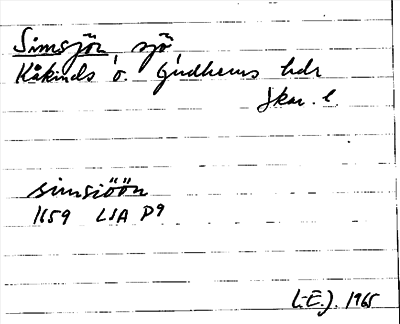 Simsjön, sjö
Kåkinds o. Gudhems hdr
Skar. l.
simsiöön
1659 LSA P9
L-E.J. 1965